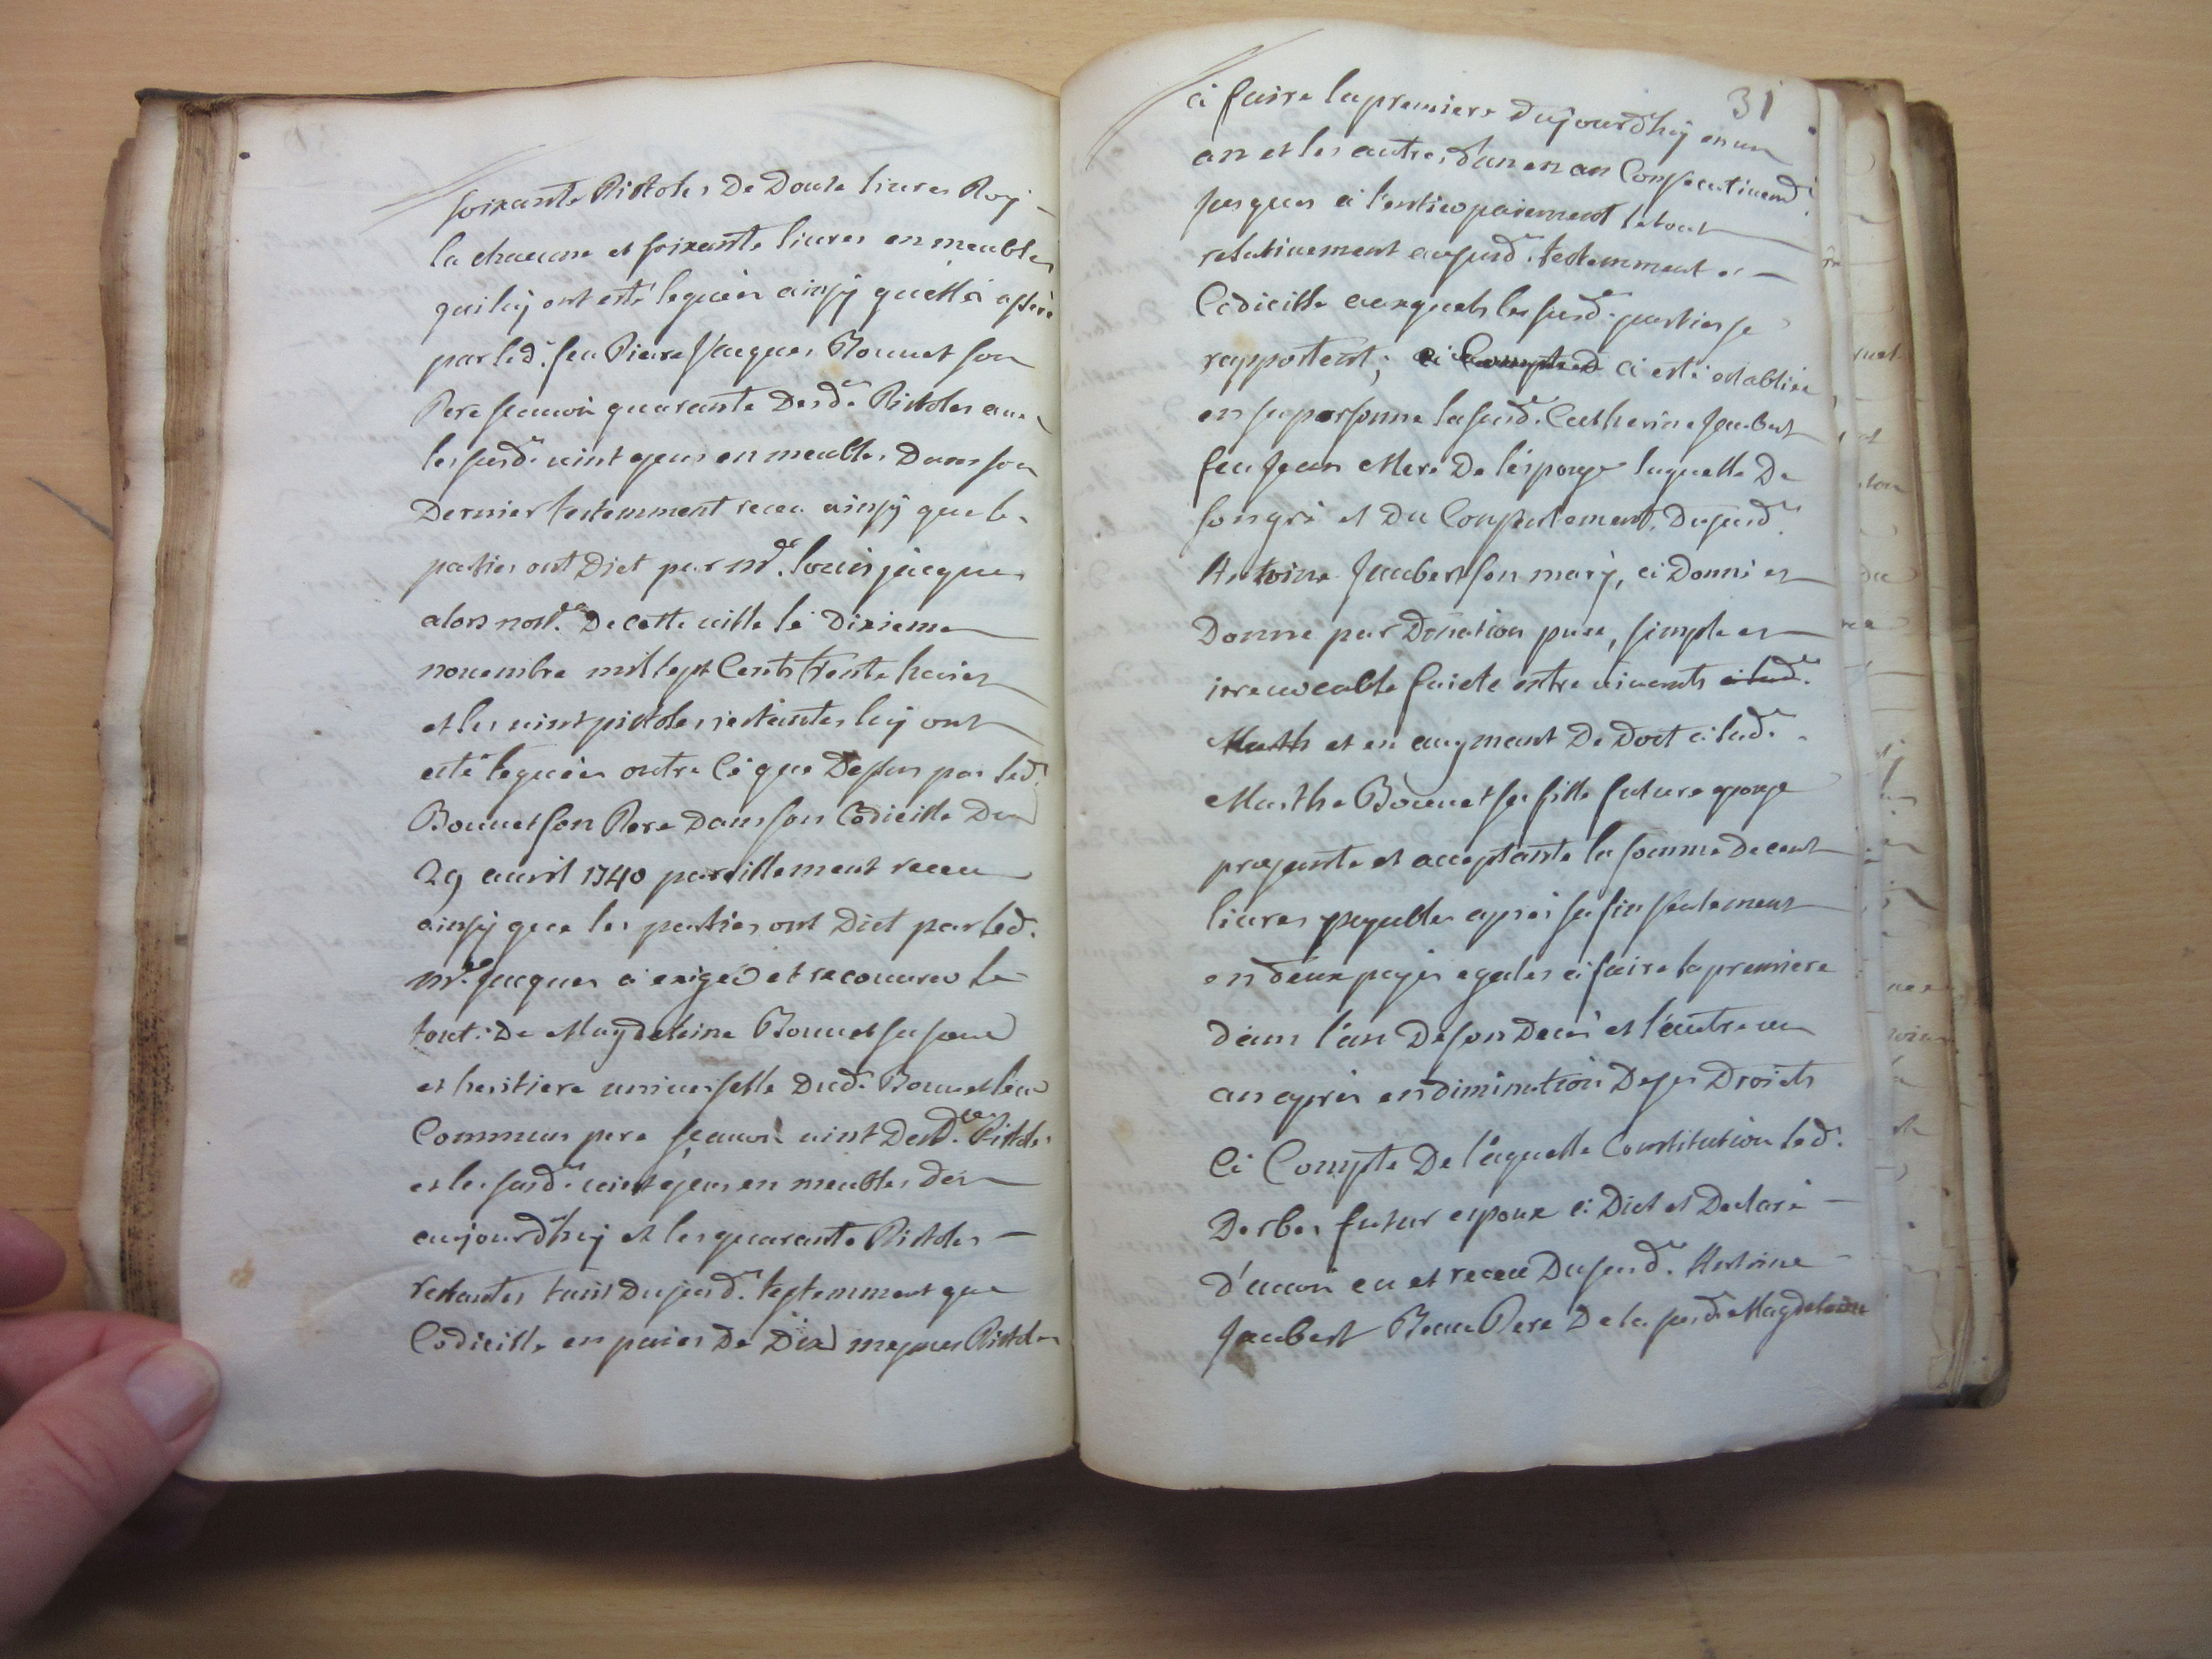 soixante Pistoles De Douze livres Roy
la chacune et soixante livres en meubles
qui luy ont esté leguéés ainsy quélle á asseré
par led. feu Pierre Jacques Bonnet son
Pere scauoir quarante Desd. Pistoles auec
les susd. vint ejeus en meubles Dans son
Dernier testemment receu ainsy que les
parties ont Dict par Mr. louis jacques
alors nott. De cette ville le Dixieme
nouembre mil sept Cents trente huict
et les vint pistoles restantes luy ont
esté leguéés outre Cé que Dessus par led.
Bonnet son Pere Dans son Codicille Du
29 auvril 1740 pareillement receu
ainsy que les parties ont Dict par led.
Mr. Jacques á exiger et recouurer le
tout: De Magdeleine Bonnet sa soeur
et heritiere uniuerselle Dud. Bonnet leur
Commun pere sçauoir vint Desd. Pistoles
et les susd. vint ejeus en meubles dés
aujourdhuy et les quarante Pistoles
restantes tant Dusud. testemment que
Codicille en paies De Dix mesmes Pistoles
31
á faire la premiere Dujourdhuy en un
an et les autres dan en an Consecutiuemt.
jusques á l'entier paiement le tout
relatiuement ausud. testemment et
Codicille auxquels les susd. parties se
rapportent; á Compted á esté establiée
en sa personne la susd. Catherine Jaubert
feu Jean Mere De l'espouse laquelle De
son gré et Du Consentement Dusud.
Antoine Jaubert son mary, á Donné et
Donne par Donation pure, simple et
irreuocable faicte entre viuants á lad.
Marth et en augment De Dot á lad.
Marthe Bonnet sa fille future epouse
presente et acceptante la somme De cent
livres payables aprés sa fin seulement
en deux payes egales á faire la premiere
dans l'an De son Decés et l'autre un
an aprés en diminution De ses Droicts
Cé Compte De laquelle Constitution led.
Derbes futur espoux á Dict et Declaré
d'auoir eu et receu Dusud. Antoine
Jaubert Beau Pere De la susd. Magdeleine